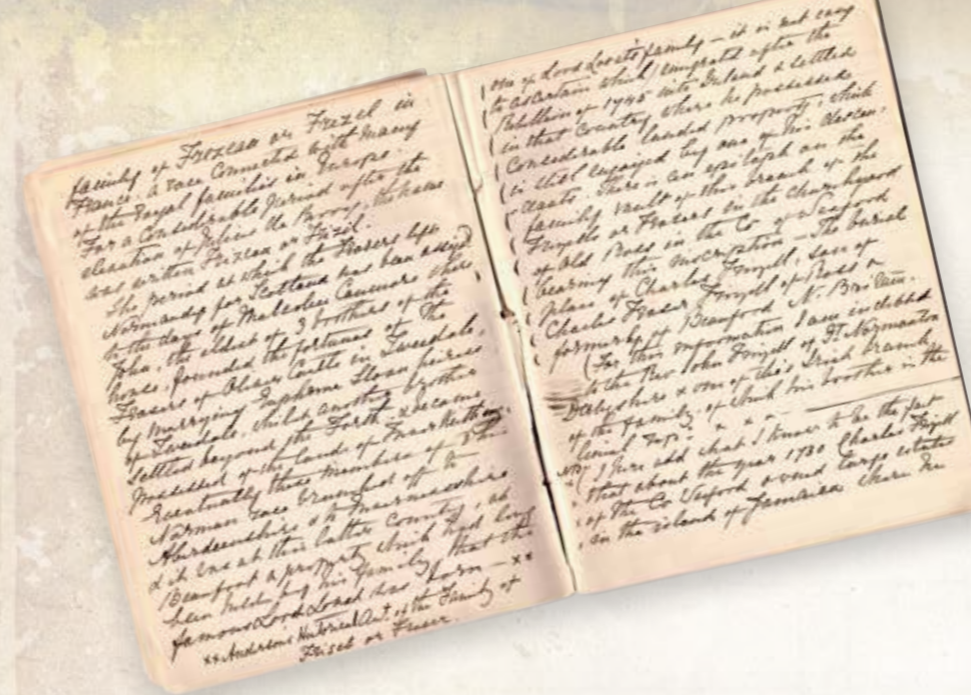 family of Frezeau or Frezel in
France, a race connected with many
of the Royal families in Europe.
For a Considerable period after the
elevation of Julius de Berry, the name
was written Frezeau or Frizil.
The period at which the Frasers left
Normandy for Scotland has been assigd
to the days of Malcolm Canmore when
John, the eldest of 3 brothers of the
house, founded the fortunes of the
Frasers of Oliver Castle in Tweedale,
by marrying Eupheme Sloan heiress
of Tweedale, whilst another brother
settled beyond the Forth & became
possessed of the lands of Inverkeithing.
Eventually these members of this
Norman race branched off to
Aberdeenshire & to Invernessshire
& it was at this latter County, at
Beaufort a property which had long
been held by his family, that the
famous Lord Lovat was born — xx
xx Andersons Historical Act. of the Family of
Frisel or Fraser.
one of Lord Lovats family — it is not easy
to ascertain which) emigrated after the
Rebellion of 1745 into Ireland & settled
in that Country where he possessed
Considerable landed property, which
is still enjoyed by one of his descen-
dants. There is an epitaph on the
family vault of this branch of the
Frizells or Frasers in the churchyard
of Old Ross in the Co of Wexford
bearing this inscription — The burial
place of Charles Frizell, son of
Charles Fraser Frizell of Ross &
formerly of Beauford N. Britain.
(For this information I am indebted
to the Rev John Frizell of St. Normanton
Derbyshire & one of this Irish branch
of the family, of which his brother is the
living rep: x x x
(I here add what I know to be the fact
that about the year 1730 Charles Frizell
of the Co Wexford owned large estates
in the island of Jamaica where he